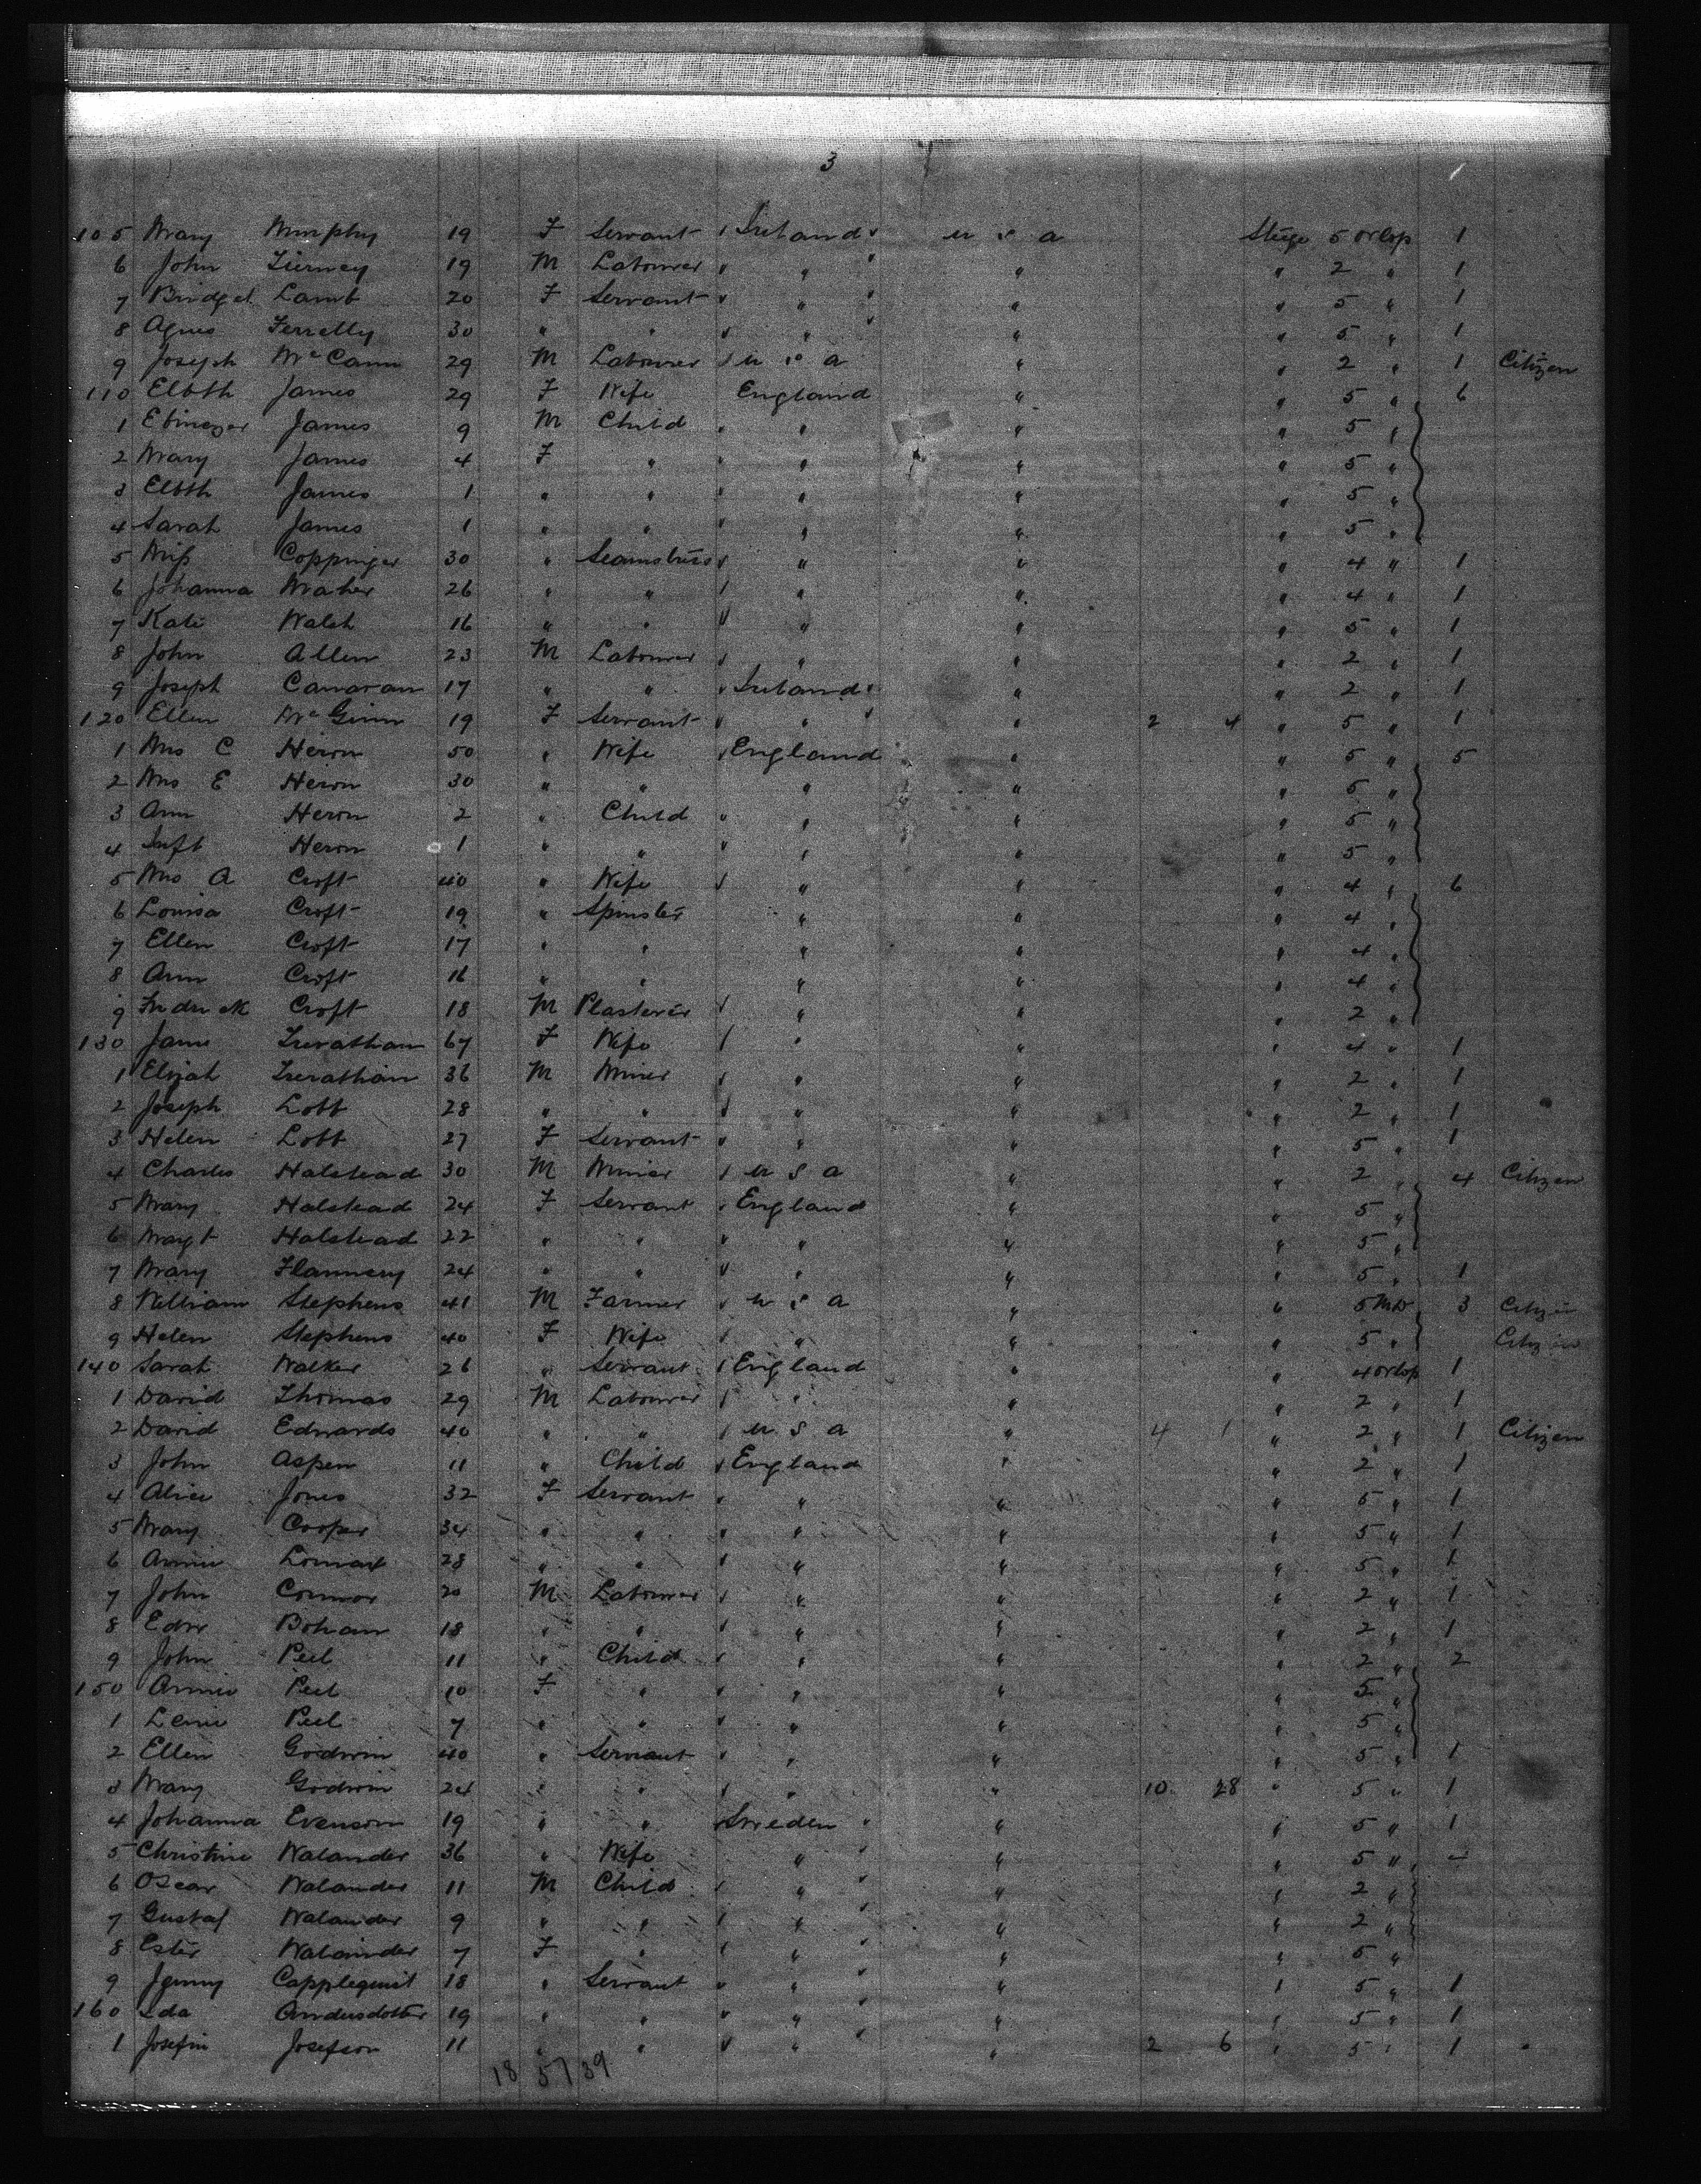 3
105 Mary Murphy 19 F Servant Ireland U S A Steige 5 orlop 1
6 John Tierney 19 M Labourer " " " 2 " 1
7 Bridget Lamb 20 F Servant " " " 5 " 1
8 Agnes Ferrelly 30 " " " " " 5 " 1
9 Joseph McCann 29 M Labourer U S A " " 2 " 1 Citizen
110 Elbth James 29 F Wife England " " 5 " 6
1 Ebinezer James 9 M Child " " " 5 "
2 Mary James 4 F " " " " 5 "
3 Elbth James 1 " " " " " 5 "
4 Sarah James 1 " " " " " 5 "
5 Miss Coppinger 30 " Seamstress " " " 4 " 1
6 Johanna Maher 26 " " " " " 4 " 1
7 Kate Walsh 16 " " " " " 5 " 1
8 John Allen 23 M Labourer " " " 2 " 1
9 Joseph Canavan 17 " " Ireland " " 2 " 1
120 Ellen McGinn 19 F Servant " " 2 4 " 5 " 1
1 Mrs C Heron 50 " Wife England " " 5 " 5
2 Mrs E Heron 30 " " " " " 5 "
3 Ann Heron 2 " Child " " " 5 "
4 Inft Heron 1 " " " " " 5 "
5 Mrs A Croft 40 " Wife " " 4 " 6
6 Louisa Croft 19 " Spinster " " " 4 "
7 Ellen Croft 17 " " " " " 4 "
8 Ann Croft 16 " " " " " 4 "
9 Fredrick Croft 18 M Plasterer " " " 2 "
130 Jane Trevathan 67 F Wife " " " 4 " 1
1 Elijah Trevathan 36 M Miner " " " 2 " 1
2 Joseph Lott 28 " " " " " 2 " 1
3 Helen Lott 27 F Servant " " " 5 " 1
4 Charles Halstead 30 M Miner U S A " " 2 " 4 Citizen
5 Mary Halstead 24 F Servant England " " 5 "
6 Margt Halstead 22 " " " " " 5 "
7 Mary Flannery 24 " " " " " 5 " 1
8 William Stephens 41 M Farmer U S A " " 5 MD 3 Citizen
9 Helen Stephens 40 F Wife " " " 5 " Citizen
140 Sarah Walker 26 " Servant England " " 4 orlop 1
1 David Thomas 29 M Labourer " " " 2 " 1
2 David Edwards 40 " " U S A " 4 1 " 2 " 1 Citizen
3 John Aspen 11 " Child England " " 2 " 1
4 Alice Jones 32 F Servant " " " 5 " 1
5 Mary Cooper 34 " " " " " 5 " 1
6 Annie Lomax 28 " " " " " 5 " 1
7 John Connor 20 M Labourer " " " 2 " 1
8 Edw Bohan 18 " " " " " 2 " 1
9 John Peel 11 " Child " " " 2 " 2
150 Annie Peel 10 F " " " " 5 "
1 Lenie Peel 7 " " " " " 5 "
2 Ellen Godwin 40 " Servant " " " 5 " 1
3 Mary Godwin 24 " " " " 10 28 " 5 " 1
4 Johanna Evenson 19 " " Sweden " " 5 " 1
5 Christine Walander 36 " Wife " " " 5 "
6 Oscar Walander 11 M Child " " " 2 "
7 Gustaf Walander 9 " " " " " 2 "
8 Ester Walander 7 F " " " " 5 "
9 Jenny Capplequist 18 " Servant " " " 5 " 1
160 Ida Andersdotter 19 " " " " " 5 " 1
1 Josefin Josefson 11 " " " " 2 6 " 5 " 1
18 57 39